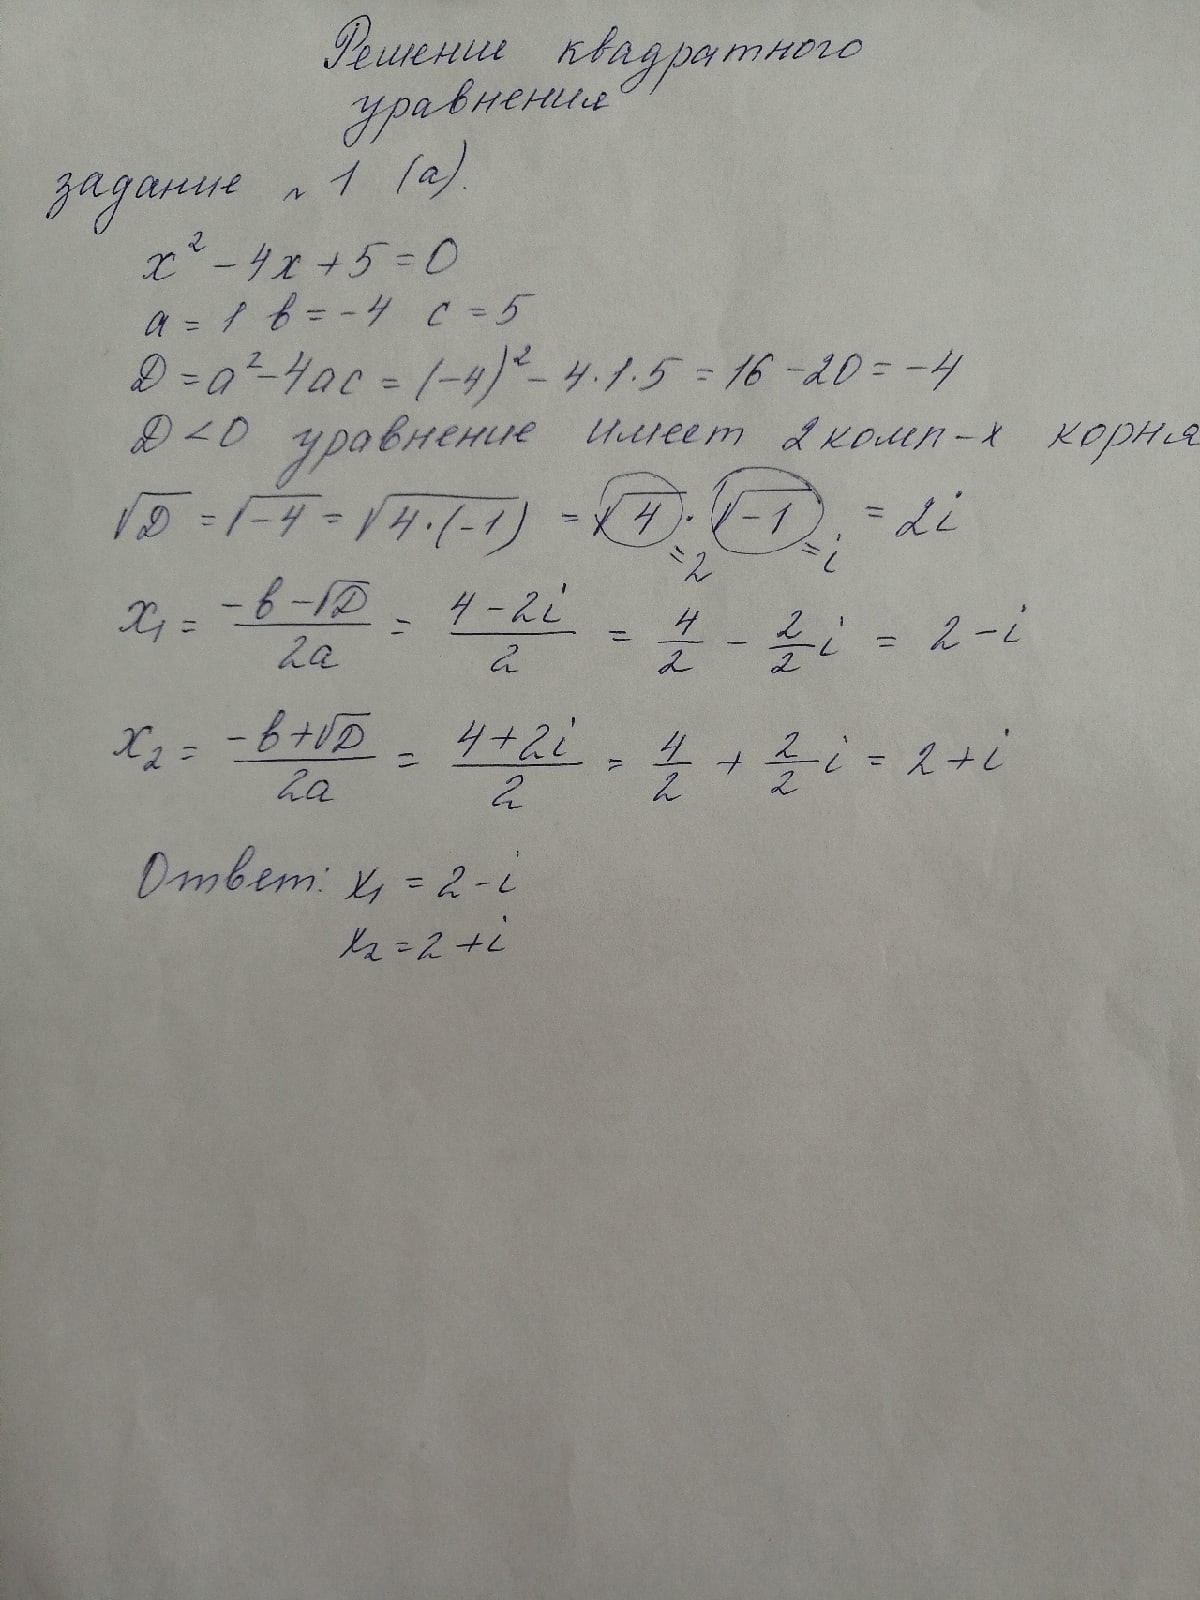 Решение квадратного
уравнения
задание № 1 (а).
x² - 4x + 5 = 0
a = 1 в = -4 c = 5
D = a² - 4ac = (-4)² - 4·1·5 = 16 - 20 = -4
D < 0 уравнение имеет 2 комп-х корня
√D = √-4 = √4·(-1) = √4 · √-1 = 2i
=2 =i
x₁ = (-в - √D)/2a = (4 - 2i)/2 = 4/2 - 2/2 i = 2 - i
x₂ = (-в + √D)/2a = (4 + 2i)/2 = 4/2 + 2/2 i = 2 + i
Ответ: x₁ = 2 - i
x₂ = 2 + i